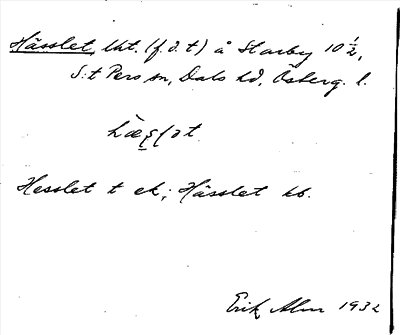 Hässlet, lht. (f.d. t) å Starby 10 ½,
S:t Pers sn, Dals hd, Österg. l.
Hesslet t ek; Hässlet kb.
Erik Alm 1932